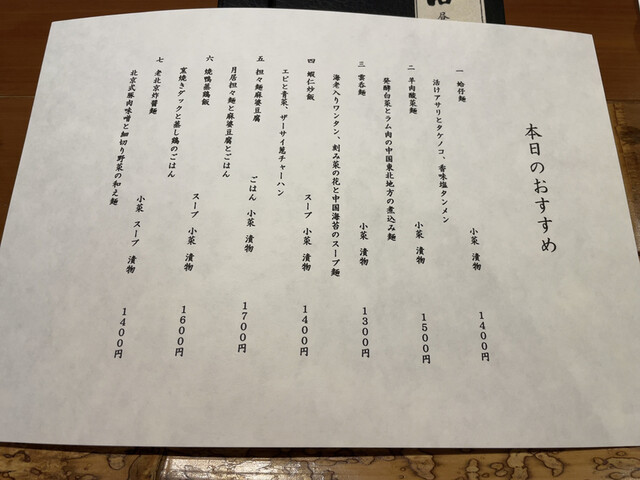 本日のおすすめ
一 蛤仔麺
活けアサリとタケノコ、香味塩タンメン
小菜 漬物 1400円
二 羊肉酸菜麺
発酵白菜とラム肉の中国東北地方の煮込み麺
小菜 漬物 1500円
三 雲呑麺
海老入りワンタン、刻み菜の花と中国海苔のスープ麺
小菜 漬物 1300円
四 蝦仁炒飯
エビと青菜、ザーサイ葱チャーハン
スープ 小菜 漬物 1400円
五 担々麺麻婆豆腐
月居担々麺と麻婆豆腐とごはん
ごはん 小菜 漬物 1700円
六 焼鴨蒸鶏飯
窯焼きダックと蒸し鶏のごはん
スープ 小菜 漬物 1600円
七 老北京炸醤麺
北京式豚肉味噌と細切り野菜の和え麺
小菜 スープ 漬物 1400円
昼